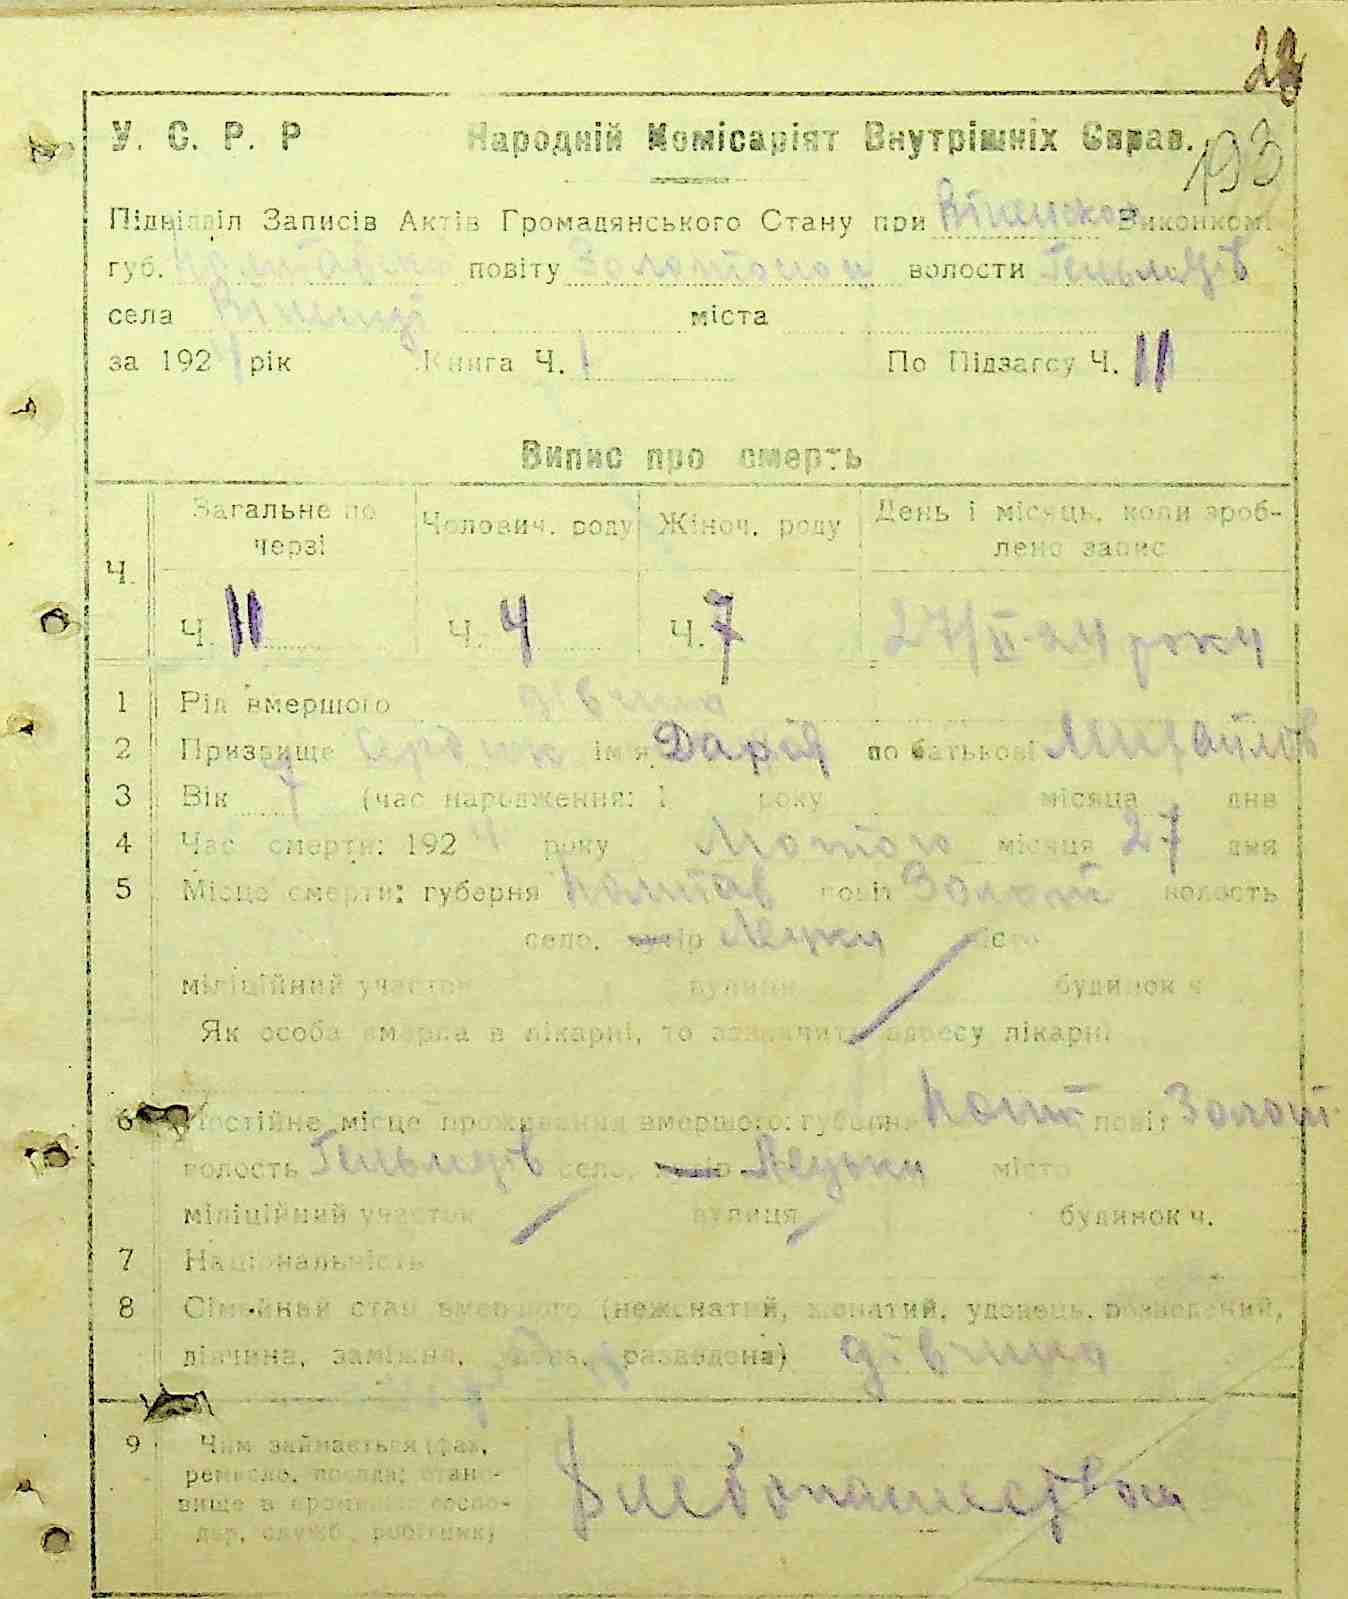 28
193
У. С. Р. Р Народній Комісаріят Внутрішніх Справ.
Підвідділ Записів Актів Громадянського Стану при Виконком.
губ. Полтавсько повіту Золотонош волости Гельмязів
села міста
за 1924 рік Книга Ч. 1 По Підзагсу Ч. 11
Випис про смерть
Ч. Загальне по черзі Чолович. роду Жіноч. роду День і місяць, коли зроб-
лено запис
Ч. 11 Ч. 4 Ч. 7 27/II-24 року
1 Рід вмершого дівчина
2 Призвище ім'я Дарія по батькові Михайлов
3 Вік 7 (час народження: 1 року місяця дня
4 Час смерти: 1924 року Лютого місяця 27 дня
5 Місце смерти: губерня Полтав повіт Золот волость
село, хутір Ляцки місто
міліційний участок вулиця будинок ч
Як особа вмерла в лікарні, то зазначить адресу лікарні
6 Постійне місце проживання вмершого: губерня Полт повіт Золот
волость Гельмязів село, хутір Ляцьки місто
міліційний участок вулиця будинок ч.
7 Національність
8 Сімейний стан вмершого (нежонатий, жонатий, удовець, розведений,
дівчина, заміжня, удова, разведена) дівчина
9 Чим займається (фах,
ремесло, посада; стано-
вище в промислі: госпо-
дар, служб., робітник)
Хлебопашеством